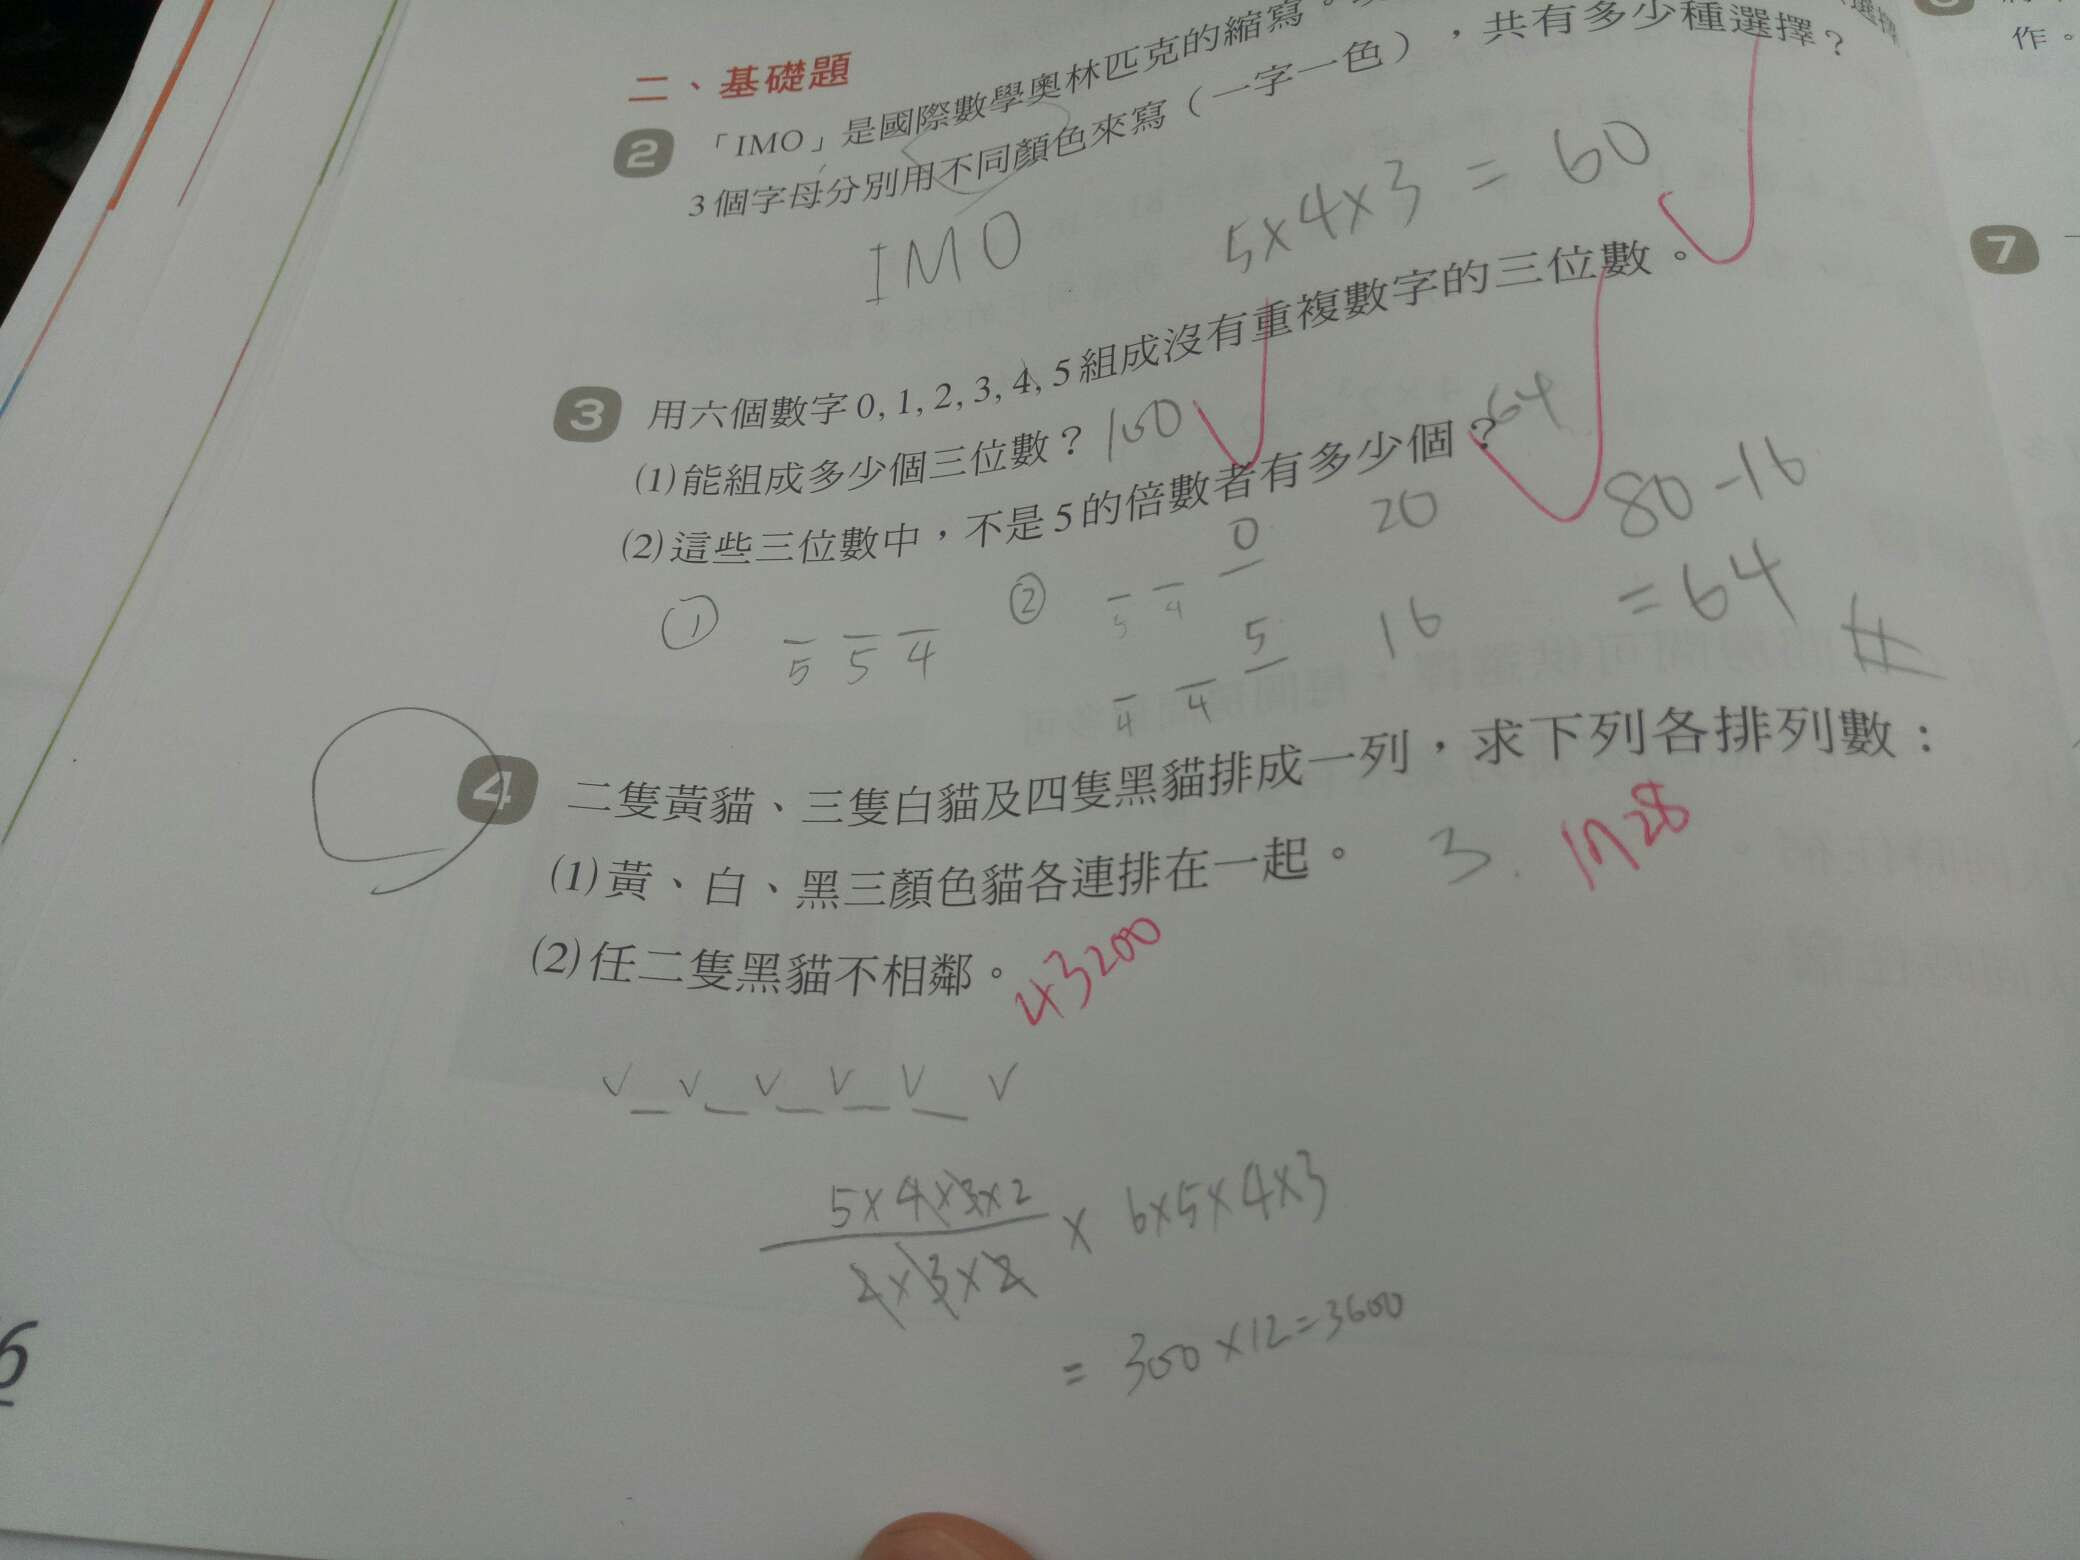 二、基礎題
2 「IMO」是國際數學奧林匹克的縮寫。
3個字母分別用不同顏色來寫（一字一色），共有多少種選擇？
IMO 5×4×3 = 60
3 用六個數字0, 1, 2, 3, 4, 5組成沒有重複數字的三位數。
(1)能組成多少個三位數？ 100
(2)這些三位數中，不是5的倍數者有多少個？ 64
① 5 5 4
② 5 4 0 20
4 4 5 16
80-16
=64 #
4 二隻黃貓、三隻白貓及四隻黑貓排成一列，求下列各排列數：
(1)黃、白、黑三顏色貓各連排在一起。 3. 1728
(2)任二隻黑貓不相鄰。 43200
5×4×3×2 × 6×5×4×3
= 300×12=3600
6
作。
7